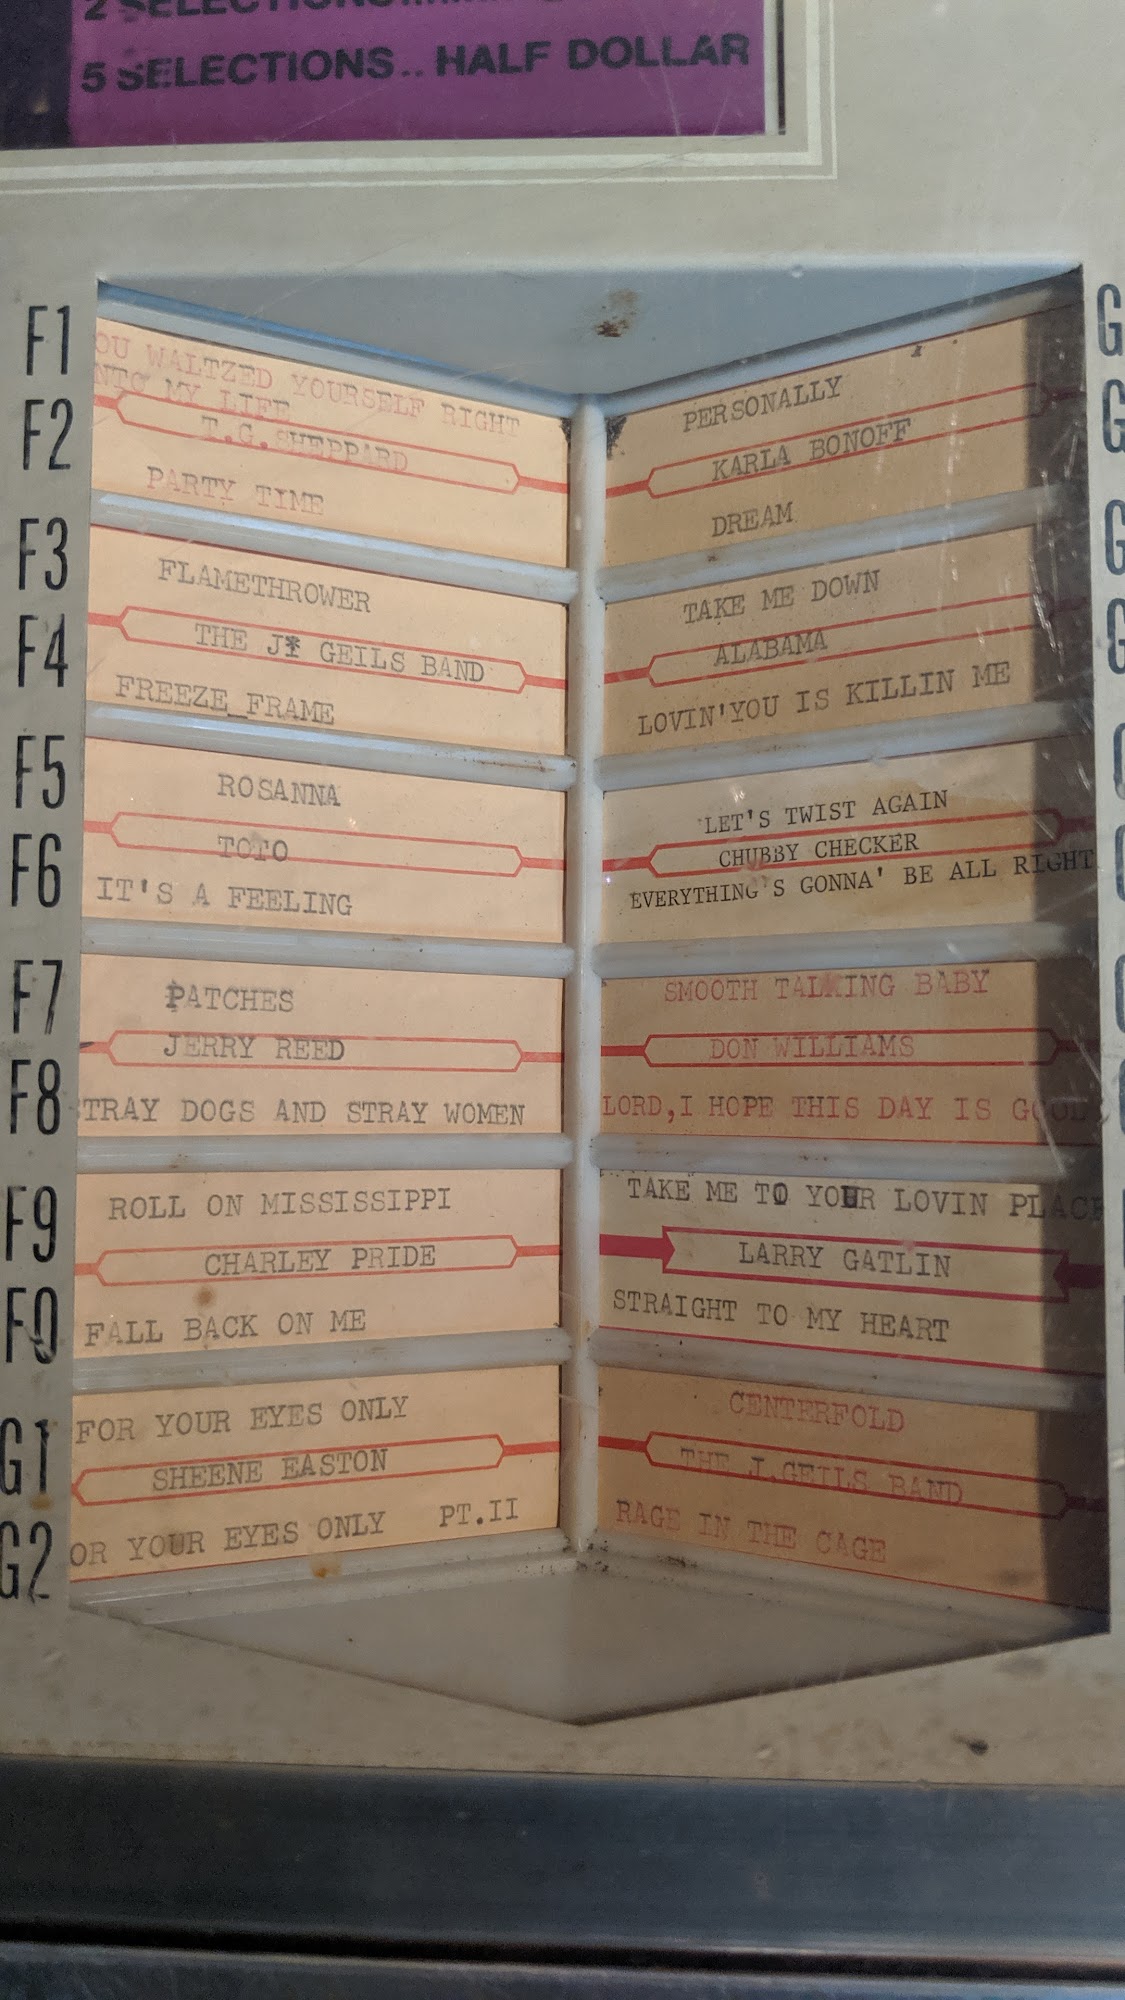 2 SELECTIONS
5 SELECTIONS.. HALF DOLLAR
F1
OU WALTZED YOURSELF RIGHT
NTO MY LIFE
F2
T.G.SHEPPARD
PARTY TIME
F3
FLAMETHROWER
F4
THE J. GEILS BAND
FREEZE_FRAME
F5
ROSANNA
TOTO
F6
IT'S A FEELING
F7
PATCHES
JERRY REED
F8
TRAY DOGS AND STRAY WOMEN
F9
ROLL ON MISSISSIPPI
CHARLEY PRIDE
F0
FALL BACK ON ME
G1
FOR YOUR EYES ONLY
SHEENE EASTON
G2
OR YOUR EYES ONLY PT.II
G
PERSONALLY
G
KARLA BONOFF
DREAM
G
TAKE ME DOWN
G
ALABAMA
LOVIN'YOU IS KILLIN ME
LET'S TWIST AGAIN
CHUBBY CHECKER
EVERYTHING'S GONNA' BE ALL RIGHT
SMOOTH TALKING BABY
DON WILLIAMS
LORD,I HOPE THIS DAY IS GOOD
TAKE ME TO YOUR LOVIN PLACE
LARRY GATLIN
STRAIGHT TO MY HEART
CENTERFOLD
THE J.GEILS BAND
RAGE IN THE CAGE